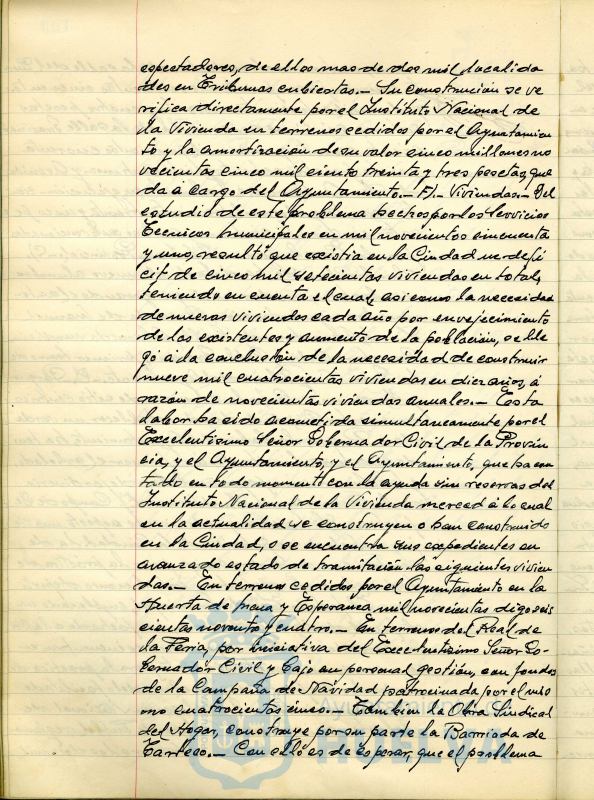 espectadores, de ellos mas de dos mil localida
des en Tribunas cubiertas.- Su construción se ve
rifica directamente por el Instituto Nacional de
la Vivienda en terrenos cedidos por el Ayuntamien
to y la amortización de su valor cinco millones no
vecientas cinco mil ciento treinta y tres pesetas, que
da á cargo del Ayuntamiento.- F).- Viviendas.- Del
estudio de este problema hechos por los Servicios
Tecnicos Municipales en mil novecientos cincuenta
y uno, resultó que existia en la Ciudad un defi
cit de cinco mil setecientas viviendas en total,
teniendo en cuenta el cual, asi como la necesidad
de nuevas viviendas cada año por envejecimiento
de las existentes y aumento de la población, se lle
gó á la conclusión de la necesidad de construir
nueve mil cuatrocientas viviendas en diez años, á
razón de novecientas viviendas anuales.- Esta
labor ha sido acometida simultaneamente por el
Excelentisimo Señor Gobernador Civil de la Provin
cia, y el Ayuntamiento, y el Ayuntamiento, que ha con
tado en todo momento con la ayuda sin reservas del
Instituto Nacional de la Vivienda merced á lo cual
en la actualidad se construyen o han construido
en la Ciudad, o se encuentra sus expedientes en
avanzado estado de tramitación las siguientes vivien
das.- En terrenos cedidos por el Ayuntamiento en la
Huerta de Mena y Esperanza mil novecientas digo seis
cientas noventa y cuatro.- En terrenos del Real de
la Feria, por iniciativa del Excelentisimo Señor Go-
bernador Civil y bajo su personal gestión, con fondos
de la Campaña de Navidad patrocinada por el mis
mo cuatrocientas cinco.- Tambien la Obra Sindical
del Hogar, construye por su parte la Barriada de
Tarteso.- Con ello és de esperar, que el problema